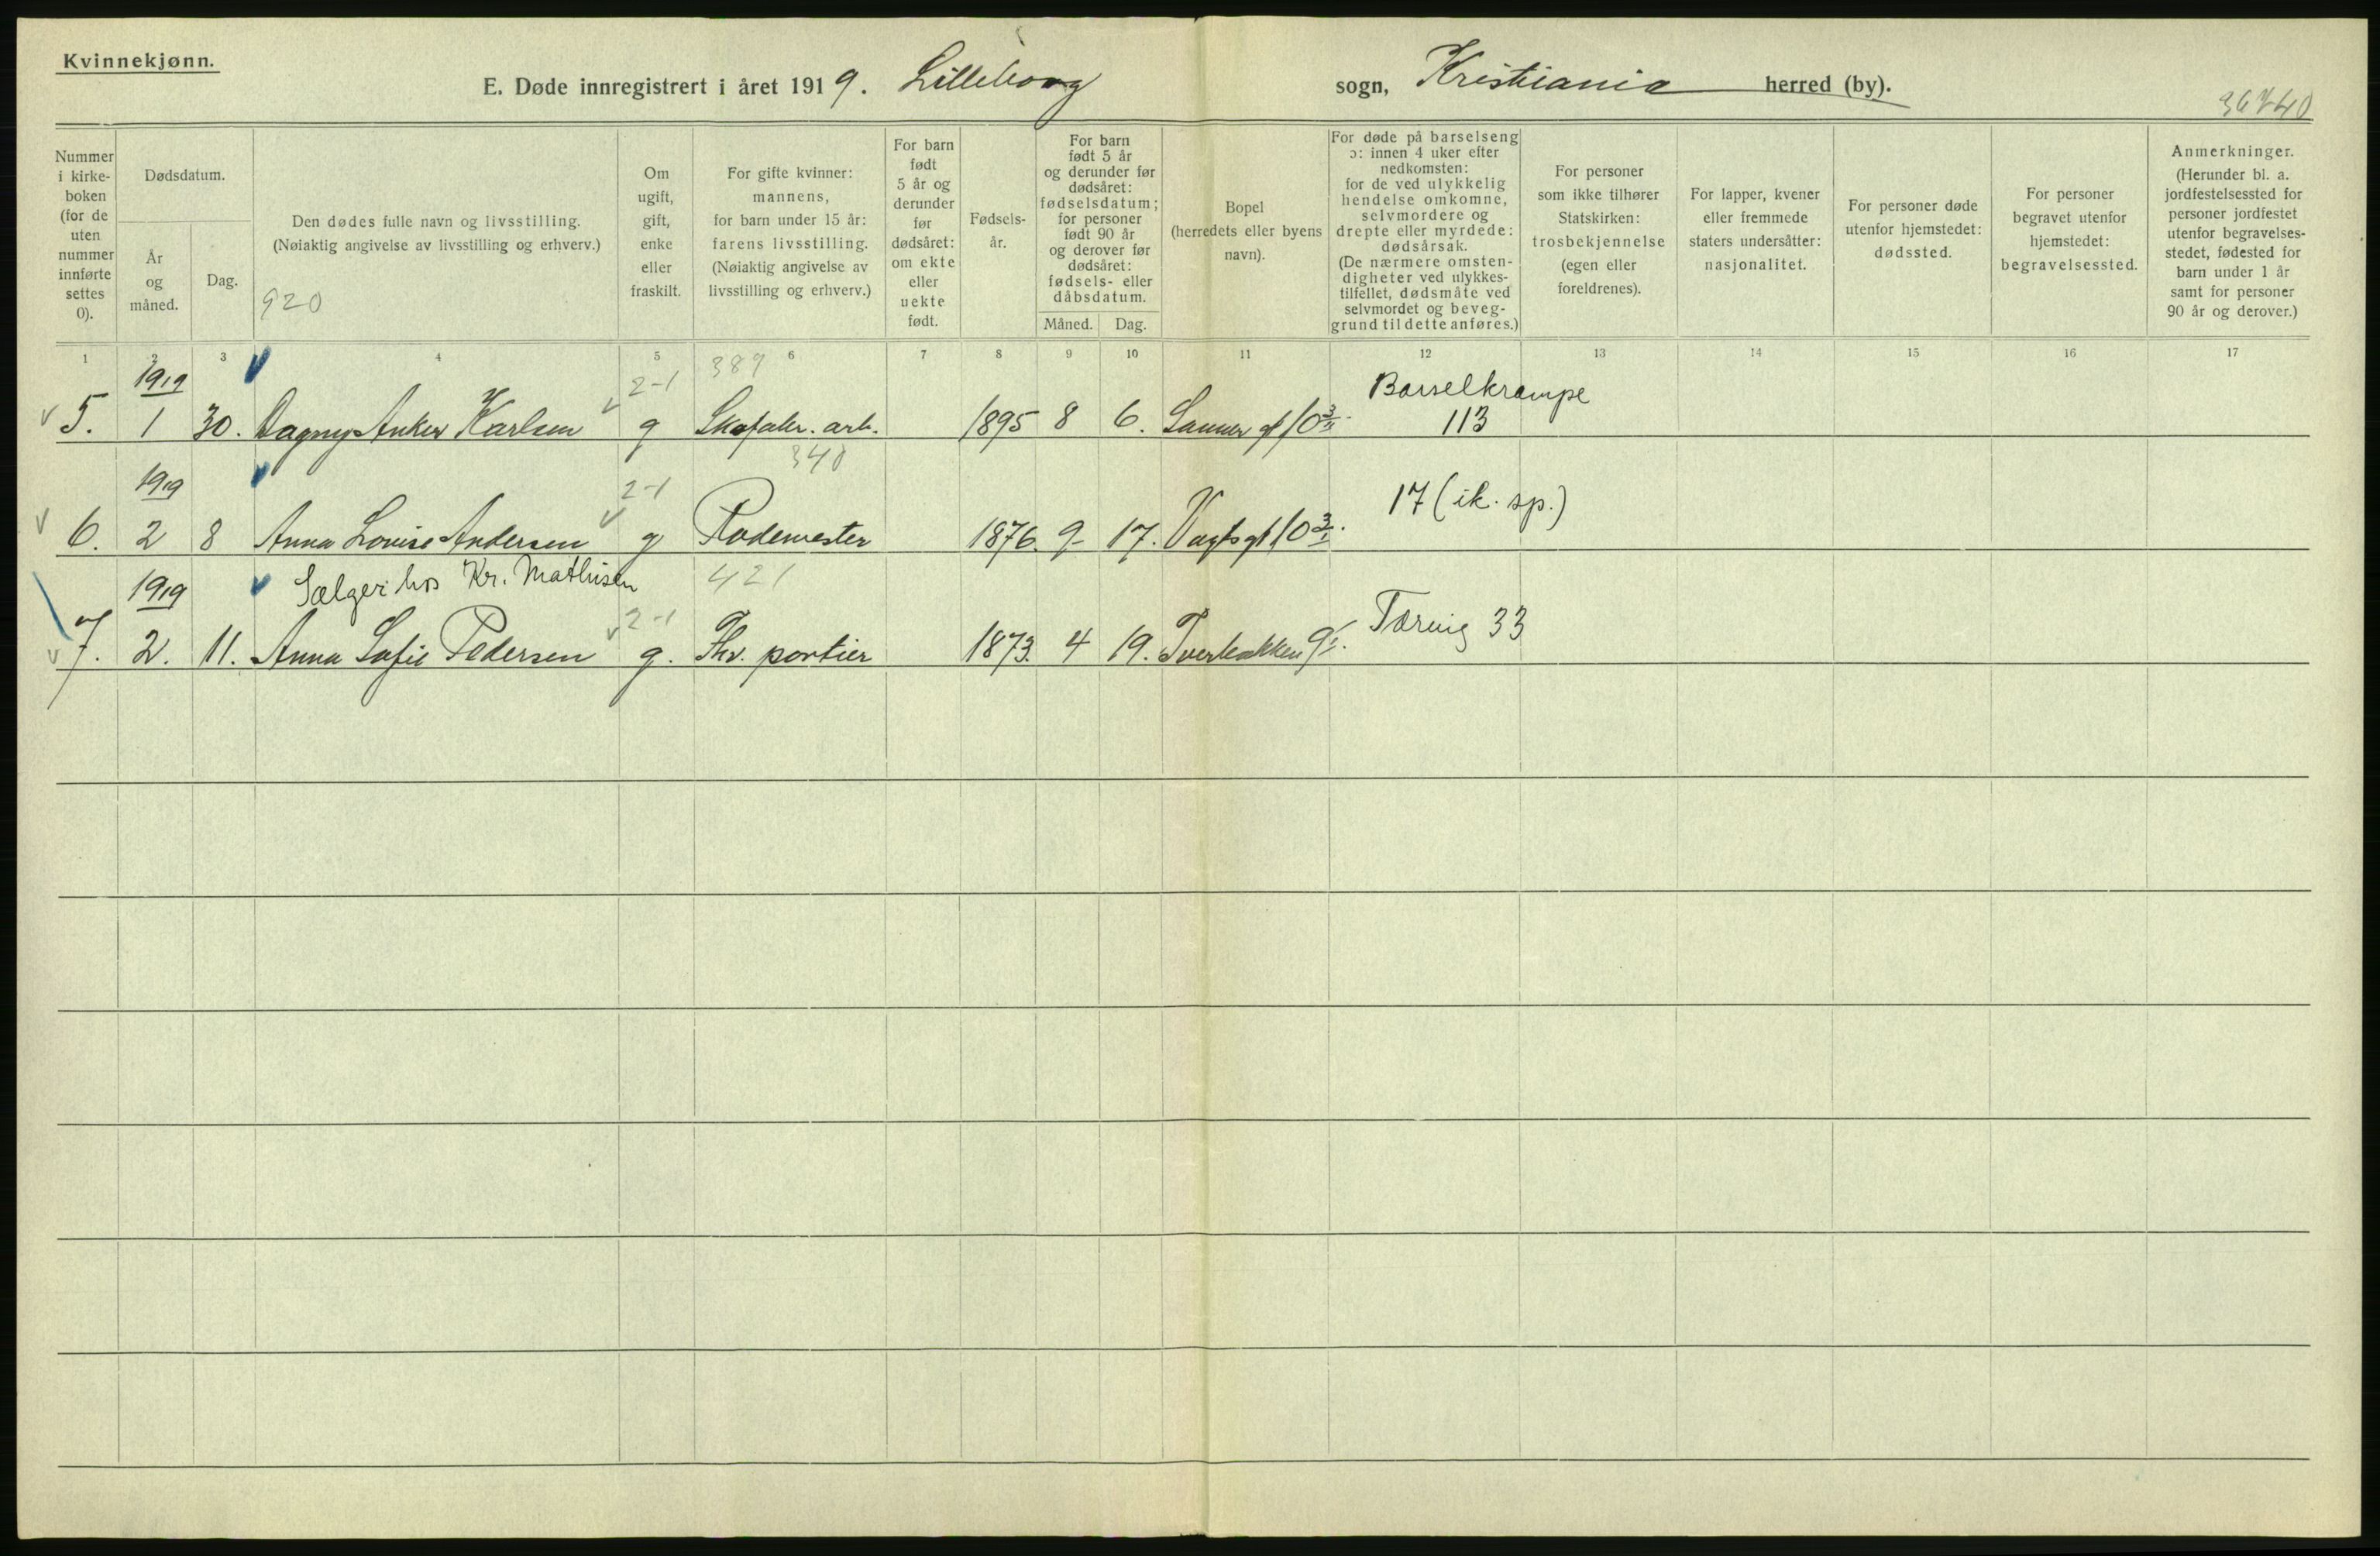 Kvinnekjønn.
E. Døde innregistrert i året 1919. Lilleborg sogn, Kristiania herred (by).
Nummer i kirke-boken (for de uten nummer innførte settes 0).
Dødsdatum.
År og måned.
Dag.
Den dødes fulle navn og livsstilling.
(Nøiaktig angivelse av livsstilling og erhverv.)
920
Om ugift, gift, enke eller fraskilt.
For gifte kvinner: mannens, for barn under 15 år: farens livsstilling.
(Nøiaktig angivelse av livsstilling og erhverv.)
For barn født 5 år og derunder før dødsåret: om ekte eller uekte født.
Fødsels-år.
For barn født 5 år og derunder før dødsåret: fødselsdatum; for personer født 90 år og derover før dødsåret: fødsels- eller dåbsdatum.
Måned.
Dag.
Bopel (herredets eller byens navn).
For døde på barselseng ɔ: innen 4 uker efter nedkomsten: for de ved ulykkelig hendelse omkomne, selvmordere og drepte eller myrdede: dødsårsak.
(De nærmere omsten-digheter ved ulykkes-tilfellet, dødsmåte ved selvmordet og beveg-grund til dette anføres.)
For personer som ikke tilhører Statskirken: trosbekjennelse (egen eller foreldrenes).
For lapper, kvener eller fremmede staters undersåtter: nasjonalitet.
For personer døde utenfor hjemstedet: dødssted.
For personer begravet utenfor hjemstedet: begravelsessted.
Anmerkninger.
(Herunder bl. a. jordfestelsessted for personer jordfestet utenfor begravelses-stedet, fødested for barn under 1 år samt for personer 90 år og derover.)
1 2 3 4 5 6 7 8 9 10 11 12 13 14 15 16 17
1919 2-1 389 Barselkrampe
5. 1 30. Dagny Anker Karlsen g Skofabr. arb. 1895 8 6. Sanner gt 10 113
1919 2-1 340 17 (ik. sp.)
6. 2 8 Anna Lovise Andersen g Rodemester 1876. 9 17. Vogtsgt 10
1919 Sælger hos Kr. Mathisen 2-1 421 Tæring 33
7. 2. 11. Anna Sofie Pedersen g. Fhv. portier 1873. 4 19. Tverbakken 9